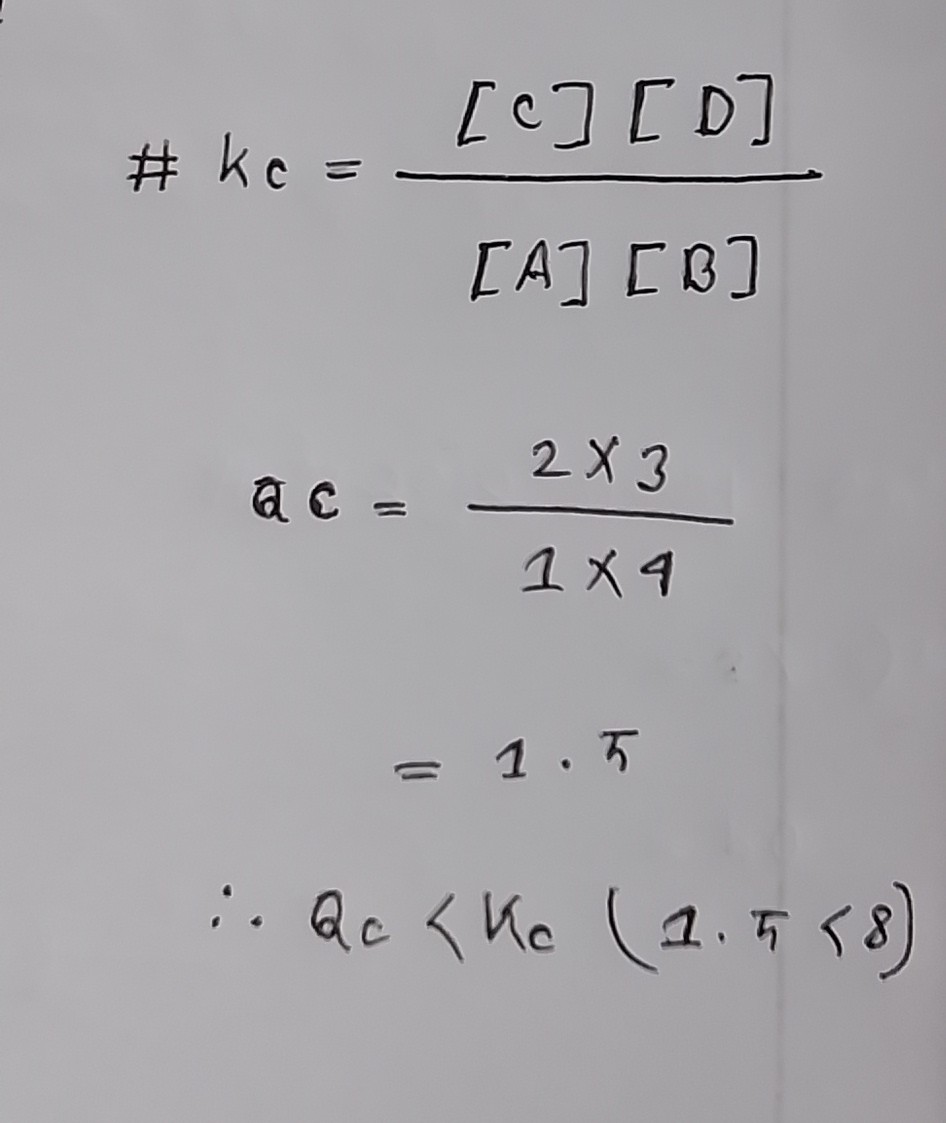 # kc = [C] [D] / [A] [B]
Qc = 2 X 3 / 1 X 4
= 1.5
∴ Qc < Kc (1.5 < 8)